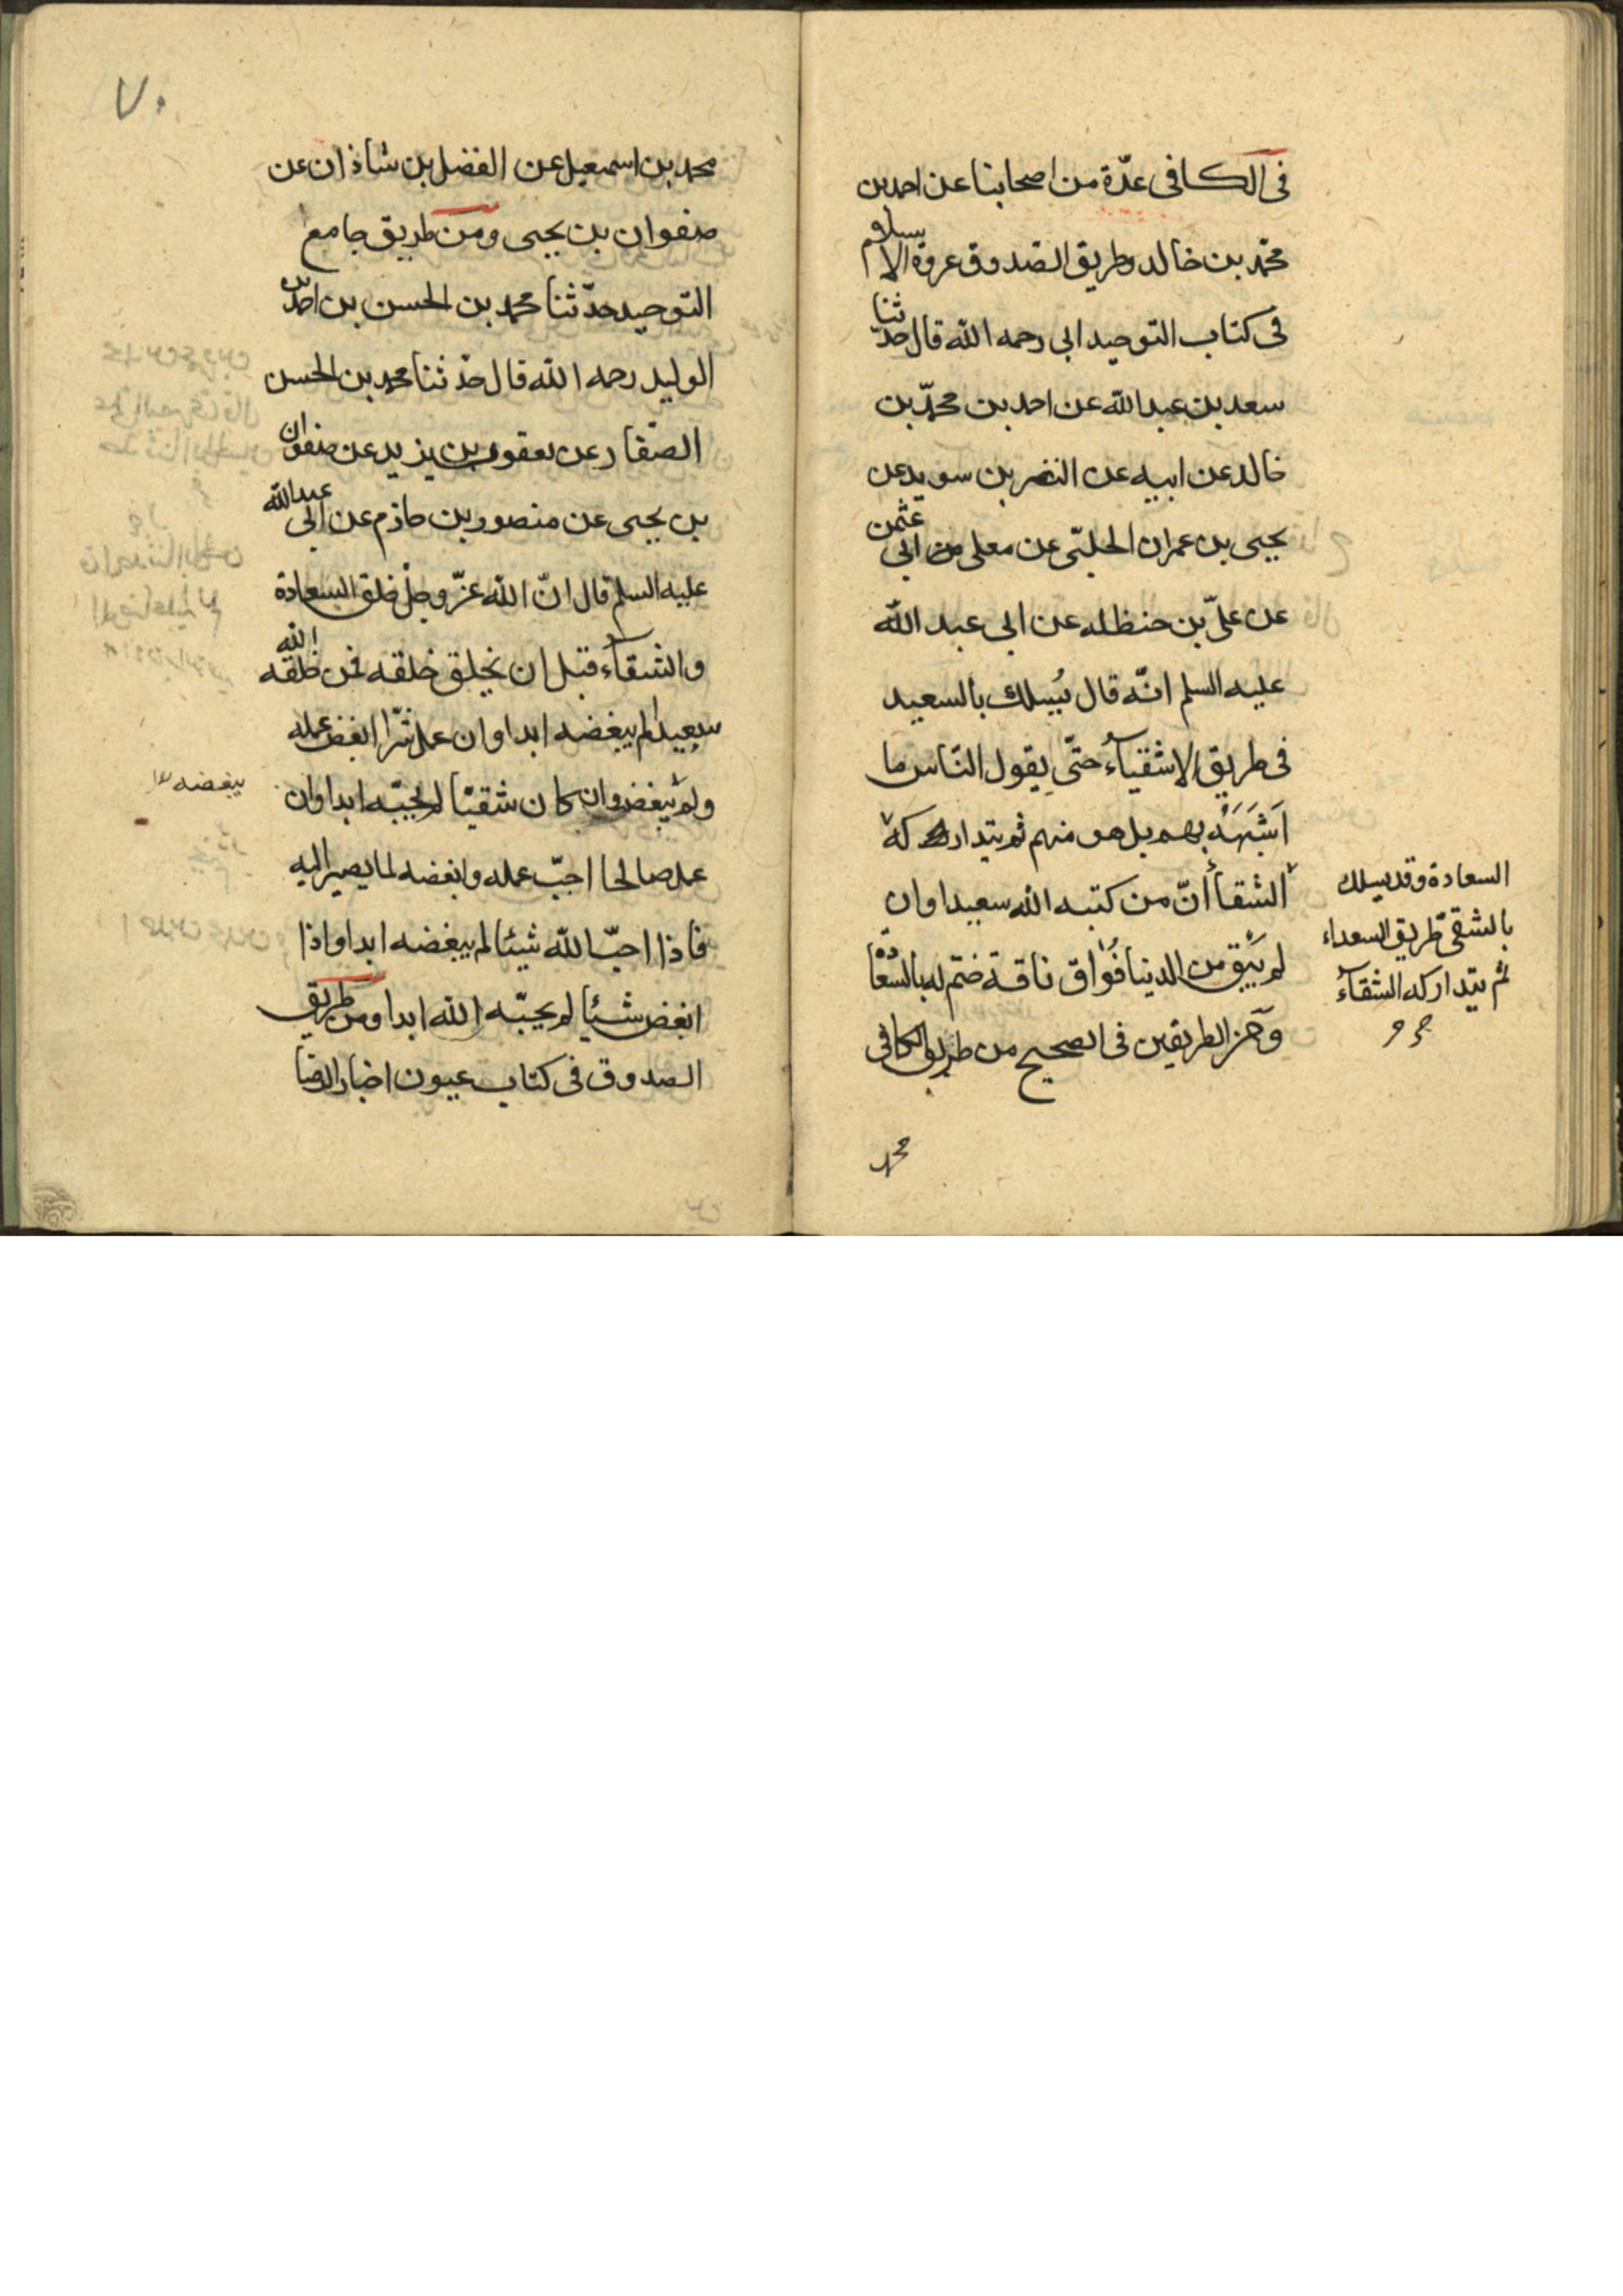 فى الكافى عدّة من اصحابنا عن احمد بن
محمّد بن خالد وطريق الصدوق عروة الاسلام
فى كتاب التوحيد ابى رحمه الله قال حدّثنا
سعد بن عبد الله عن احمد بن محمّد بن
خالد عن ابيه عن النضر بن سويد عن
يحيى بن عمران الحلبّى عن معلى من ابى عثمن
عن علىّ بن حنظله عن ابى عبد الله
عليه السلم انّه قال يُسلك بالسعيد
فى طريق الاشقيآء حتّى يقول النّاس ما
اَشبَهَهُ بهم بل هو منهم ثم يتداركه
الشقأ أنّ من كتبه الله سعيدا وان
لم يَبق من الدنيا فُواق ناقة ختم له بالسعادة
و من الطريقين فى الصحيح من طريق الكافى
السعادة وقد يسلك
بالشقىّ طريق السعداء
ثم يتداركه الشقآء
محمد
٧٠
محمد بن اسمعيل عن الفضل بن شاذان عن
صفوان بن يحيى ومن طريق جامع
التوحيد حدّثنا محمد بن الحسن بن احمد بن
الوليد رحمه الله قال حدّثنا محمد بن الحسن
الصفّار عن يعقوب بن يزيد عن صفوان
بن يحيى عن منصور بن حازم عن ابى عبد الله
عليه السلم قال انّ الله عزّ وجلّ خلق السعادة
والشقآء قبل ان يخلق خلقه فمن خلقه الله
سعيدا لم يبغضه ابدا وان عمل شرّا ابغض عمله
ولم يبغض وان كان شقيّا لم يحبّه ابدا وان
يبغضه
عمل صالحا احبّ عمله وابغضه لما يصير اليه
فاذا احبّ الله شيئا لم يبغضه ابدا واذا
ابغض شيئا لم يحبّه الله ابدا ومن طريق
الصدوق فى كتاب عيون اخبار الرضا